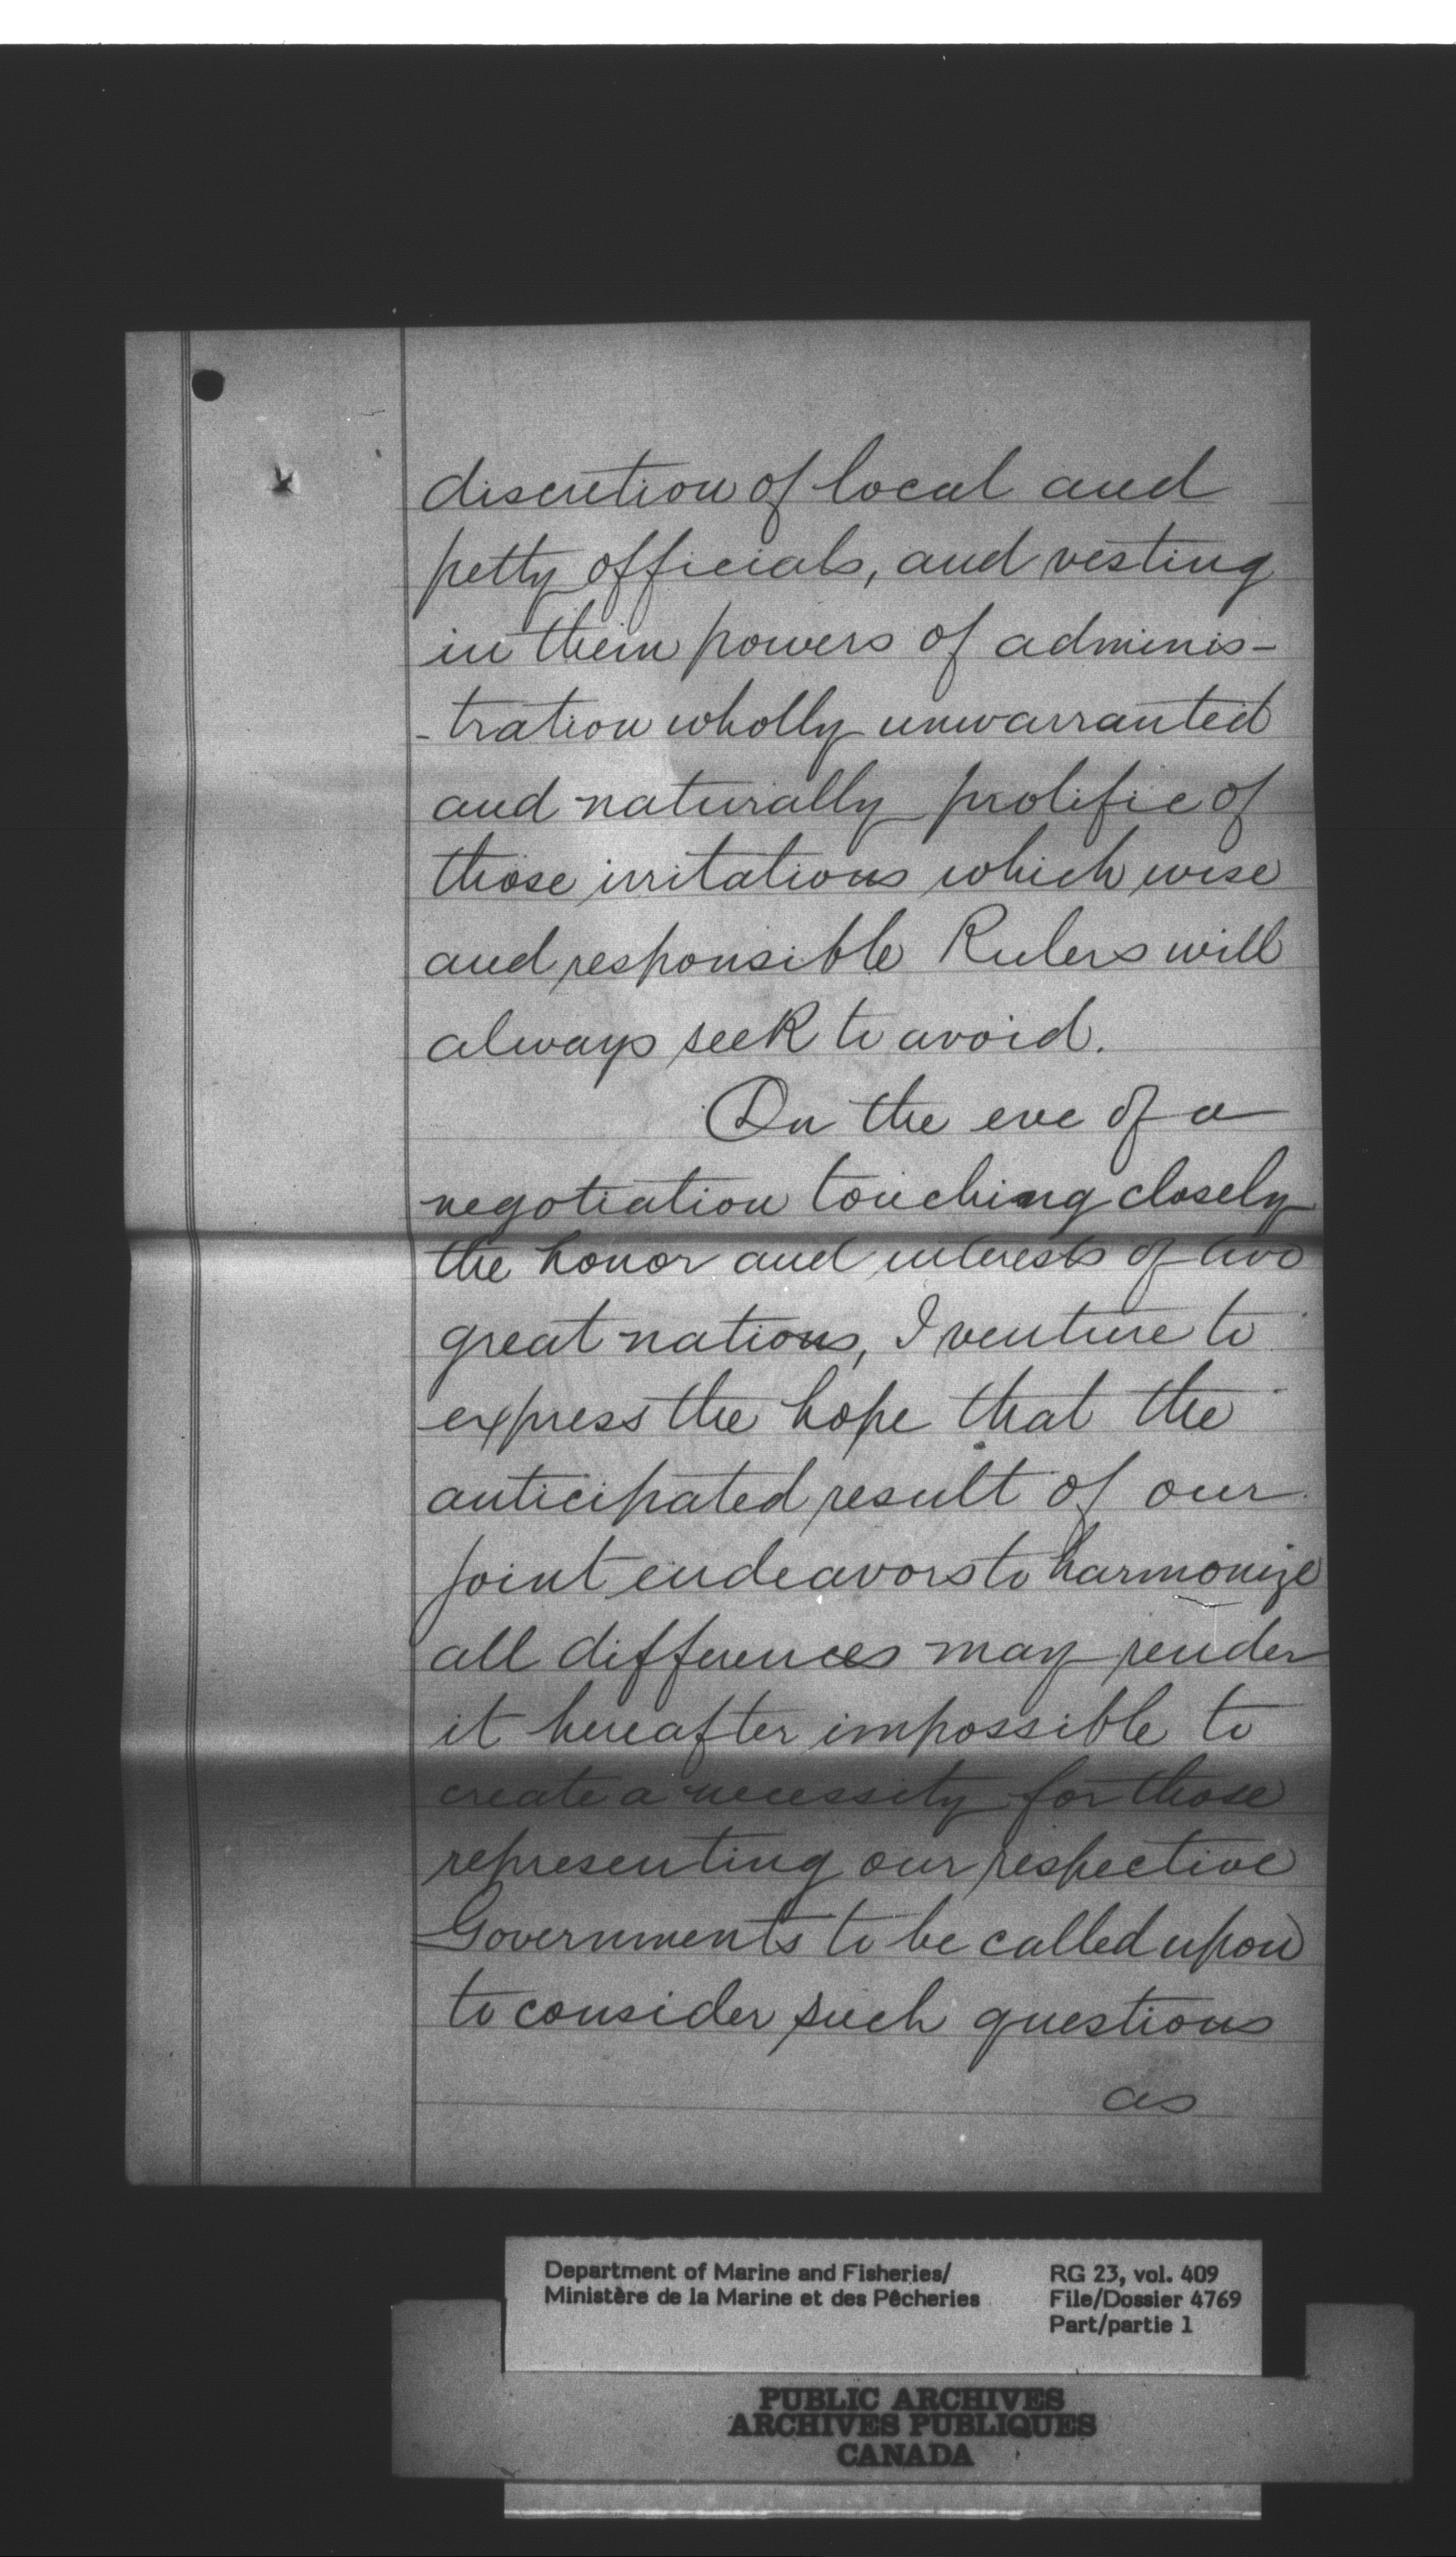 discretion of local and
petty officials, and vesting
in them powers of adminis-
-tration wholly unwarranted
and naturally prolific of
those irritations which wise
and responsible Rulers will
always seek to avoid.
On the eve of a
negotiation touching closely
the honor and interests of two
great nations, I venture to
express the hope that the
anticipated result of our
joint endeavors to harmonize
all differences may render
it hereafter impossible to
create a necessity for those
representing our respective
Governments to be called upon
to consider such questions
as
Department of Marine and Fisheries/
Ministère de la Marine et des Pêcheries
RG 23, vol. 409
File/Dossier 4769
Part/partie 1
PUBLIC ARCHIVES
ARCHIVES PUBLIQUES
CANADA